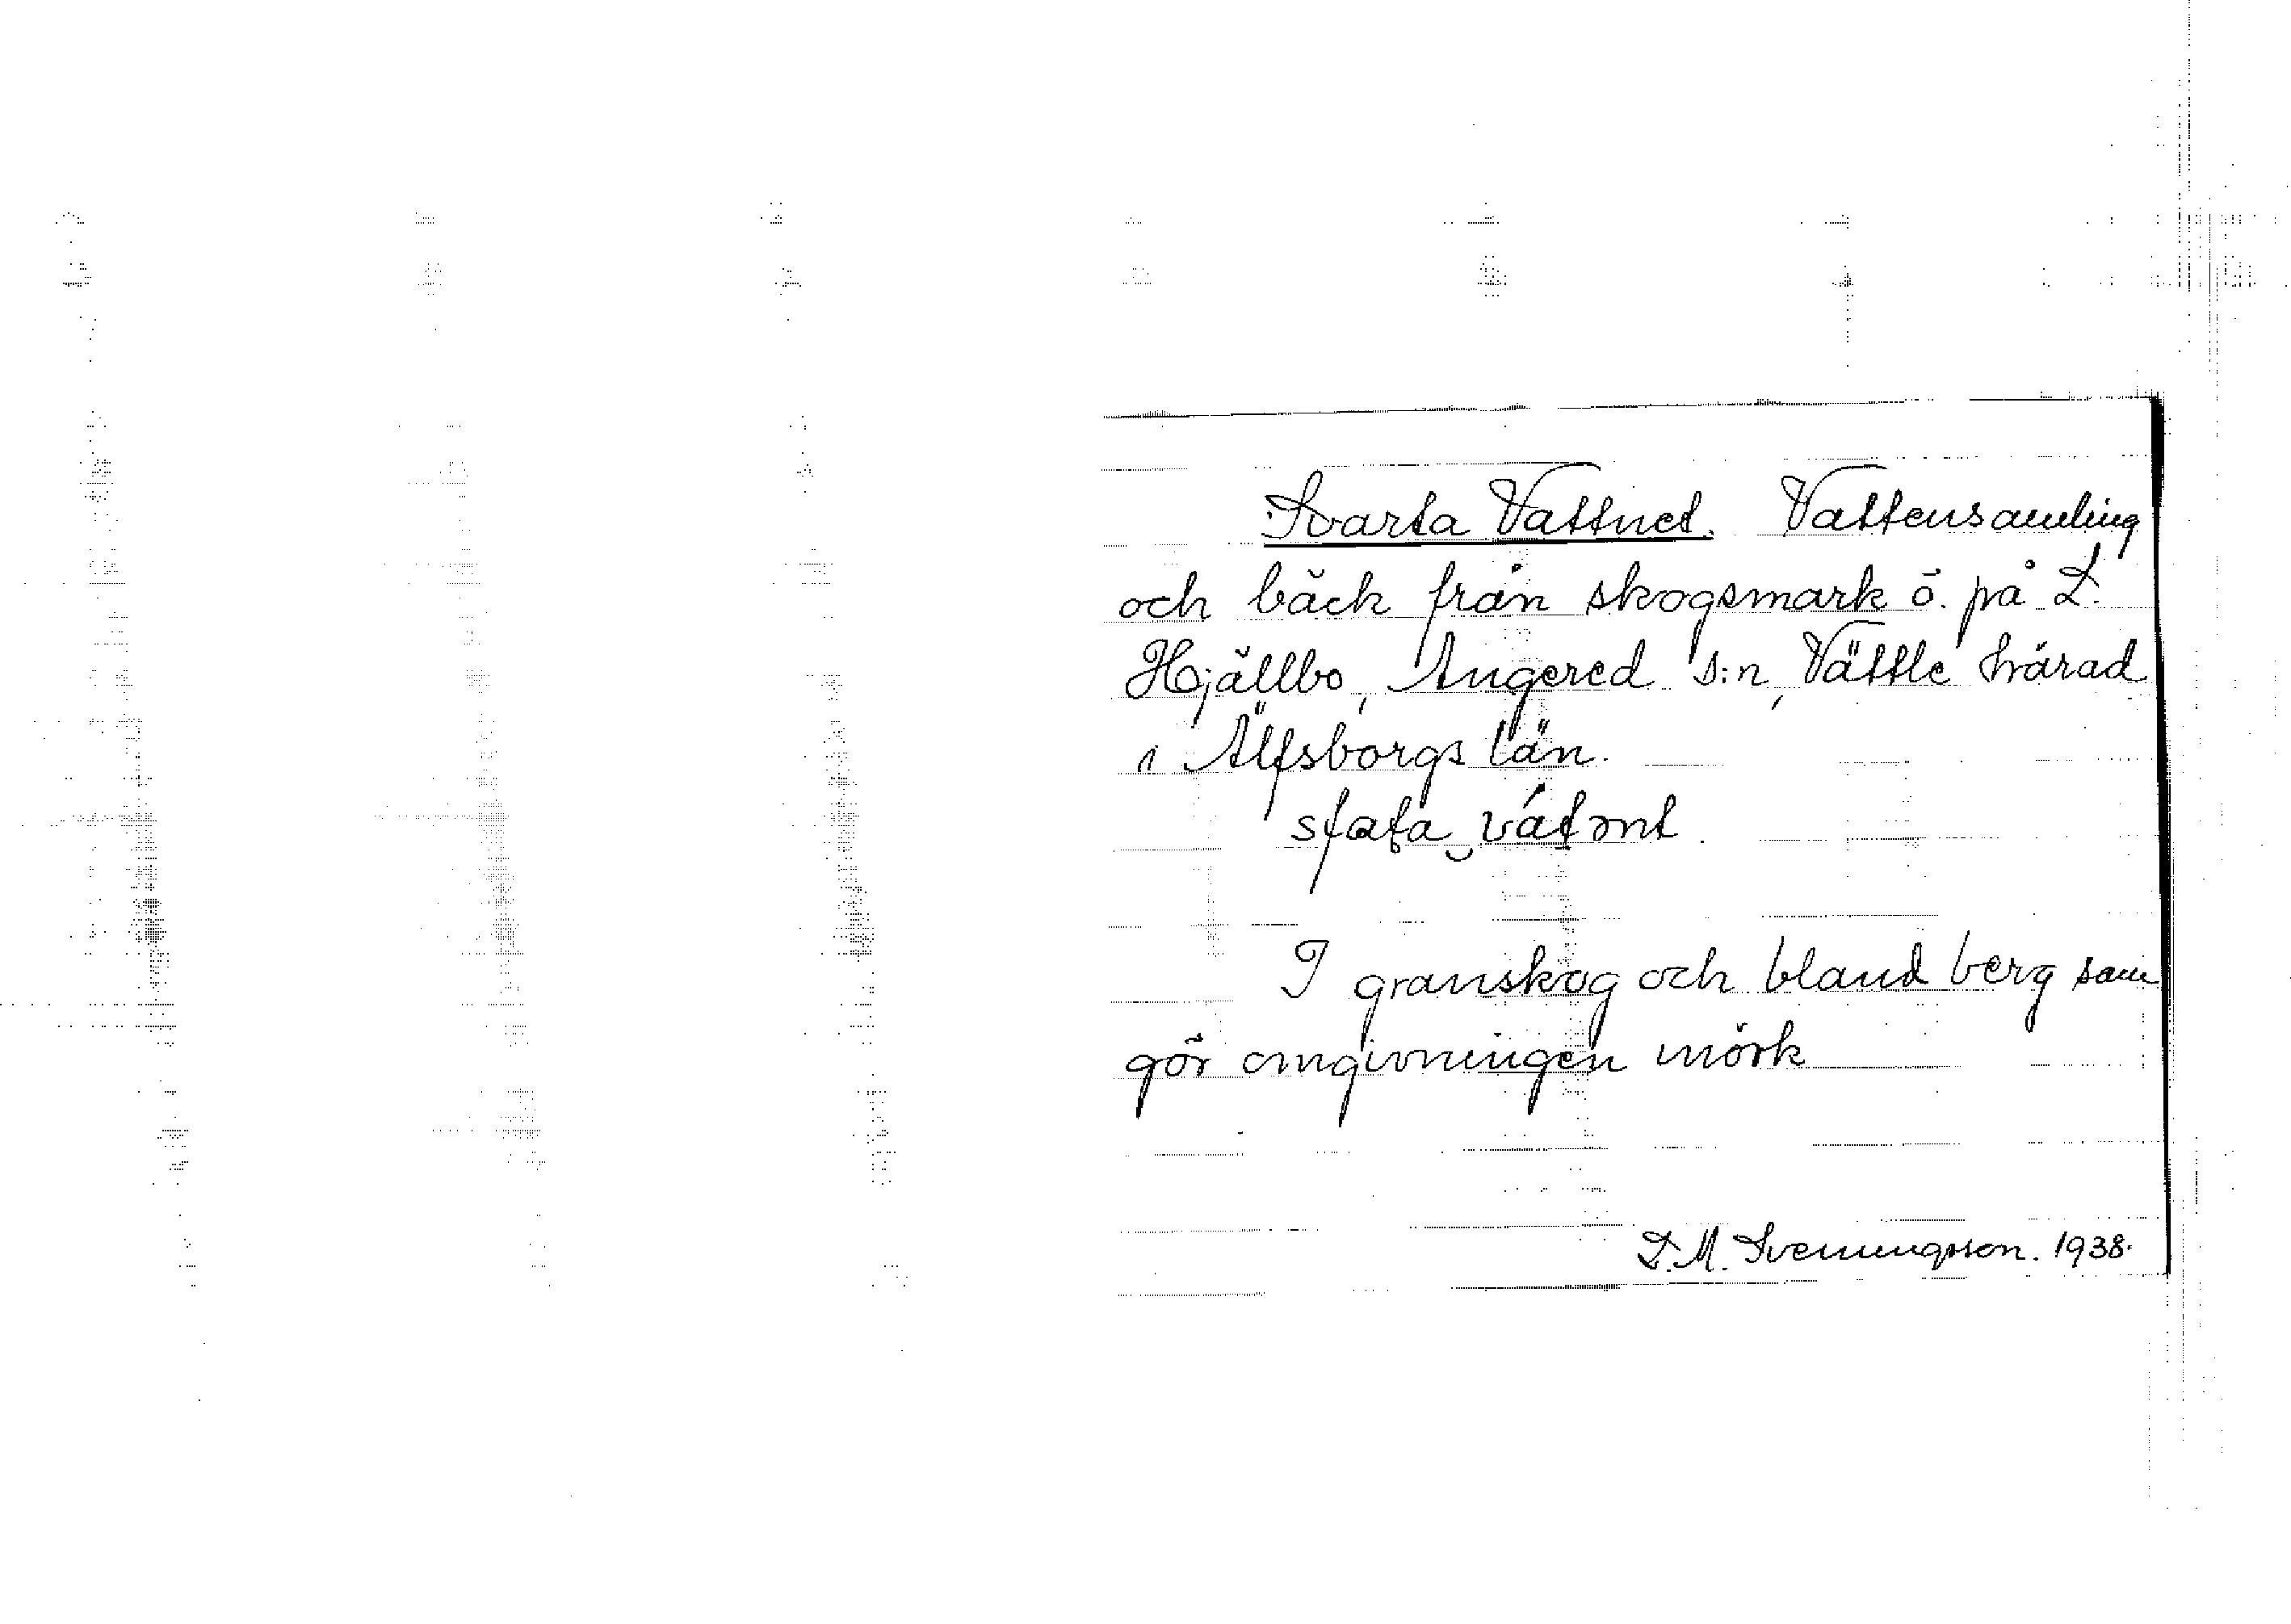 Svarta Vattnet. Vattensamling
och bäck från skogsmark ö. på L.
Hjällbo, Angered s:n, Vättle härad
i Älfsborgs län.
I granskog och bland berg som
gör omgivningen mörk
S. M. Svenningsson. 1938.